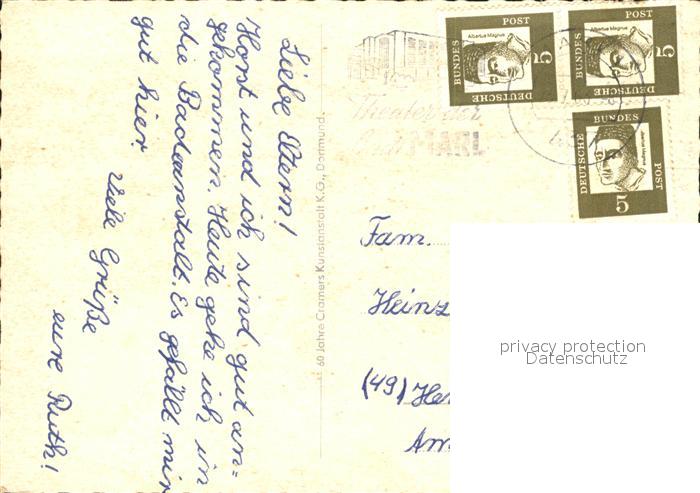 Liebe Eltern!
Horst und ich sind gut an=
gekommen. Heute gehe ich in
die Badeanstalt. Es gefällt mir
gut hier.
Viele Grüße
eure Ruth!
60 Jahre Cramers Kunstanstalt K.G., Dortmund.
Theater der
MARL
Albertus Magnus
DEUTSCHE
BUNDES
POST
5
Albertus Magnus
DEUTSCHE
BUNDES
POST
5
Albertus Magnus
DEUTSCHE
BUNDES
POST
5
Fam.
Heinz
(49)
privacy protection
Datenschutz